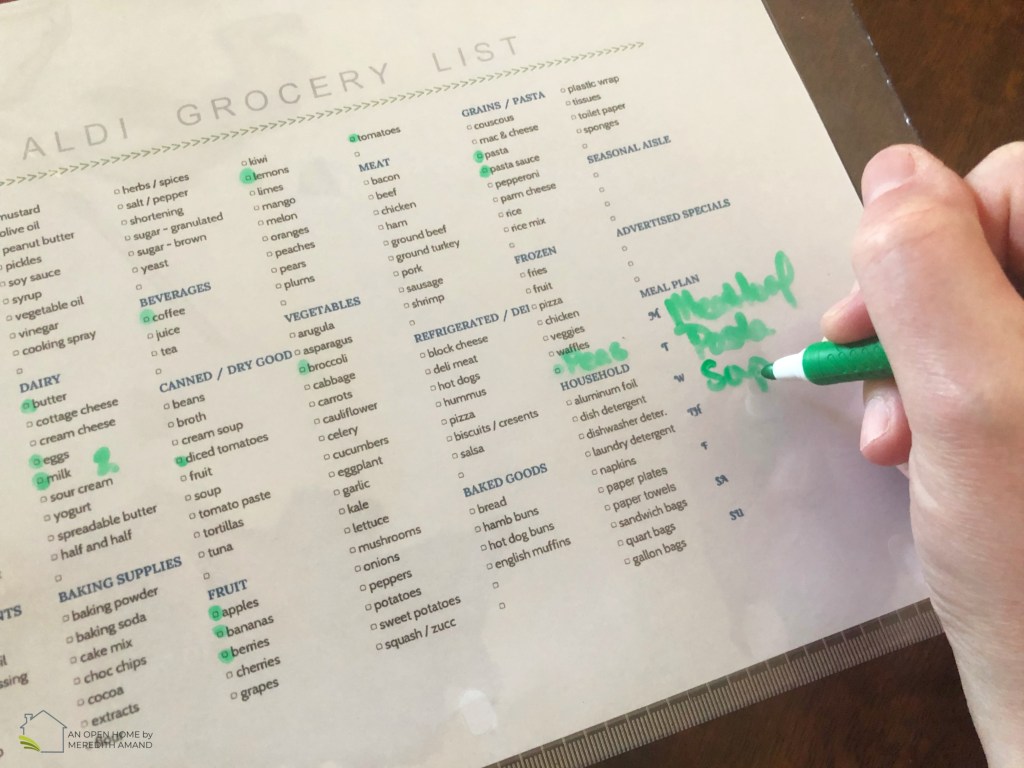 ALDI GROCERY LIST
mustard
olive oil
peanut butter
pickles
soy sauce
syrup
vegetable oil
vinegar
cooking spray
DAIRY
butter
cottage cheese
cream cheese
eggs
milk 2
sour cream
yogurt
spreadable butter
half and half
BAKING SUPPLIES
baking powder
baking soda
cake mix
choc chips
cocoa
extracts
herbs / spices
salt / pepper
shortening
sugar - granulated
sugar - brown
yeast
BEVERAGES
coffee
juice
tea
CANNED / DRY GOOD
beans
broth
cream soup
diced tomatoes
fruit
soup
tomato paste
tortillas
tuna
FRUIT
apples
bananas
berries
cherries
grapes
kiwi
lemons
limes
mango
melon
oranges
peaches
pears
plums
VEGETABLES
arugula
asparagus
broccoli
cabbage
carrots
cauliflower
celery
cucumbers
eggplant
garlic
kale
lettuce
mushrooms
onions
peppers
potatoes
sweet potatoes
squash / zucc
tomatoes
MEAT
bacon
beef
chicken
ham
ground beef
ground turkey
pork
sausage
shrimp
REFRIGERATED / DELI
block cheese
deli meat
hot dogs
hummus
pizza
biscuits / cresents
salsa
BAKED GOODS
bread
hamb buns
hot dog buns
english muffins
GRAINS / PASTA
couscous
mac & cheese
pasta
pasta sauce
pepperoni
parm cheese
rice
rice mix
FROZEN
fries
fruit
pizza
chicken
veggies
waffles
Peas
HOUSEHOLD
aluminum foil
dish detergent
dishwasher deter.
laundry detergent
napkins
paper plates
paper towels
sandwich bags
quart bags
gallon bags
plastic wrap
tissues
toilet paper
sponges
SEASONAL AISLE
ADVERTISED SPECIALS
MEAL PLAN
M Meatloaf
T Pasta
W Soup
TH
F
SA
SU
AN OPEN HOME by
MEREDITH AMAND